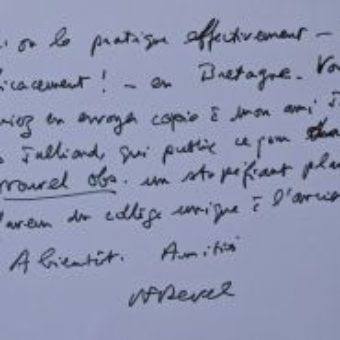 on le pratique effectivement –
icacement ! – en Bretagne. Vou
iez en envoyer copie à mon ami J
Julliard, qui publie ce jour
ouvel obs. un stupéfiant pla
en du collège unique à l'ancie
A bientôt. Amitiés
JFRevel